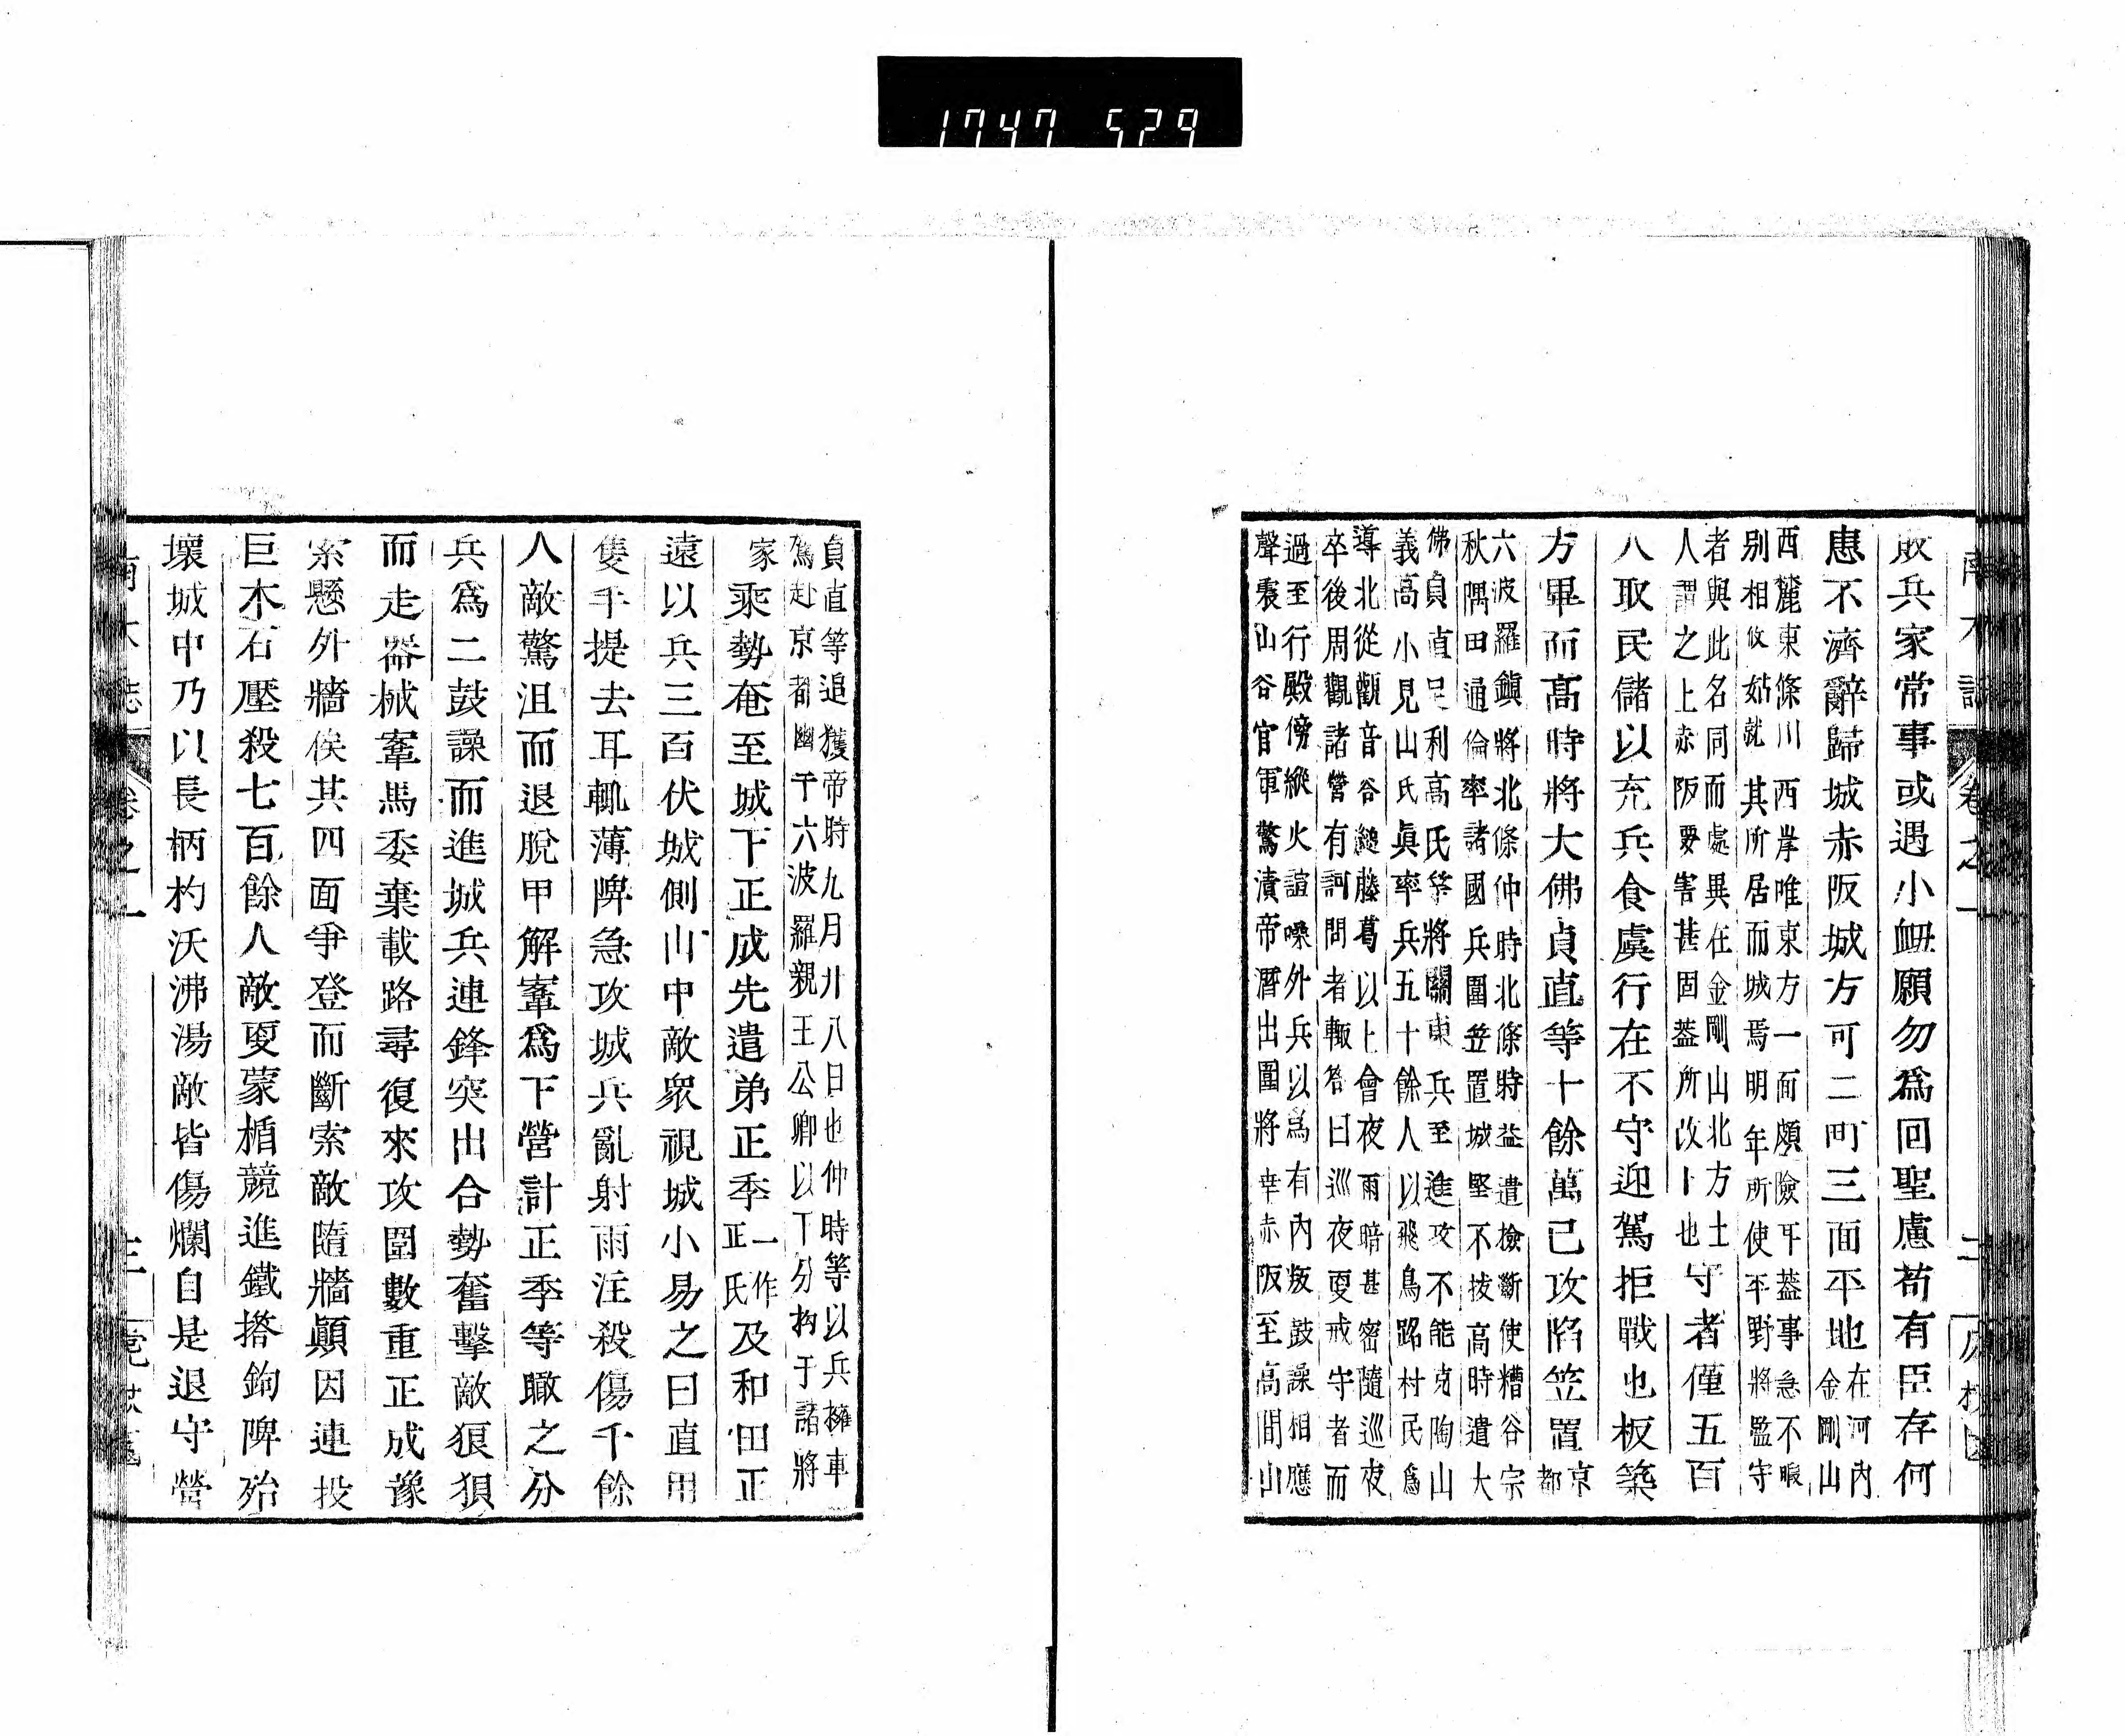 1747 529
敗兵家常事或遇小衄願勿爲回聖慮苟有臣存何
患不濟辭歸城赤阪城方可二町三面平地在河内金剛山
西麓東條川西岸唯東方一面頗險耳葢事急不暇
別相攸姑就其所居而城焉明年所使平野將監守
者與此名同而處異在金剛山北方土
人謂之上赤阪要害甚固葢所改卜也守者僅五百
人取民儲以充兵食虞行在不守迎駕拒戰也板築
方畢而高時將大佛貞直等十餘萬已攻陷笠置京都
六波羅鎭將北條仲時北條時益遣檢斷使糟谷宗
秋隅田通倫率諸國兵圍笠置城堅不拔高時遣大
佛貞直足利高氏等將關東兵至進攻不能克陶山
義高小見山氏眞率兵五十餘人以飛鳥路村民爲
導北從觀音谷縋藤葛以上會夜雨暗甚密隨巡夜
卒後周觀諸營有訶問者輙答曰巡夜更戒守者而
過至行殿傍縱火諠噪外兵以爲有内叛鼓譟相應
聲震山谷官軍驚潰帝潛出圍將幸赤阪至高間山
南木誌 卷之一 二
貞直等追獲帝時九月廿八日也仲時等以兵擁車
駕赴京都幽于六波羅親王公卿以下分拘于諸將
家乘勢奄至城下正成先遣弟正季一作正氏及和田正
遠以兵三百伏城側山中敵衆視城小易之曰直用
隻手提去耳輒薄陴急攻城兵亂射雨注殺傷千餘
人敵驚沮而退脫甲解鞌爲下營計正季等瞰之分
兵爲二鼓譟而進城兵連鋒突出合勢奮擊敵狼狽
而走器械鞌馬委棄載路尋復來攻圍數重正成豫
索懸外牆俟其四面爭登而斷索敵隨牆顚因連投
巨木石壓殺七百餘人敵更蒙楯競進鐵搭鉤陴殆
壞城中乃以長柄杓沃沸湯敵皆傷爛自是退守營
南木誌 卷之一 三